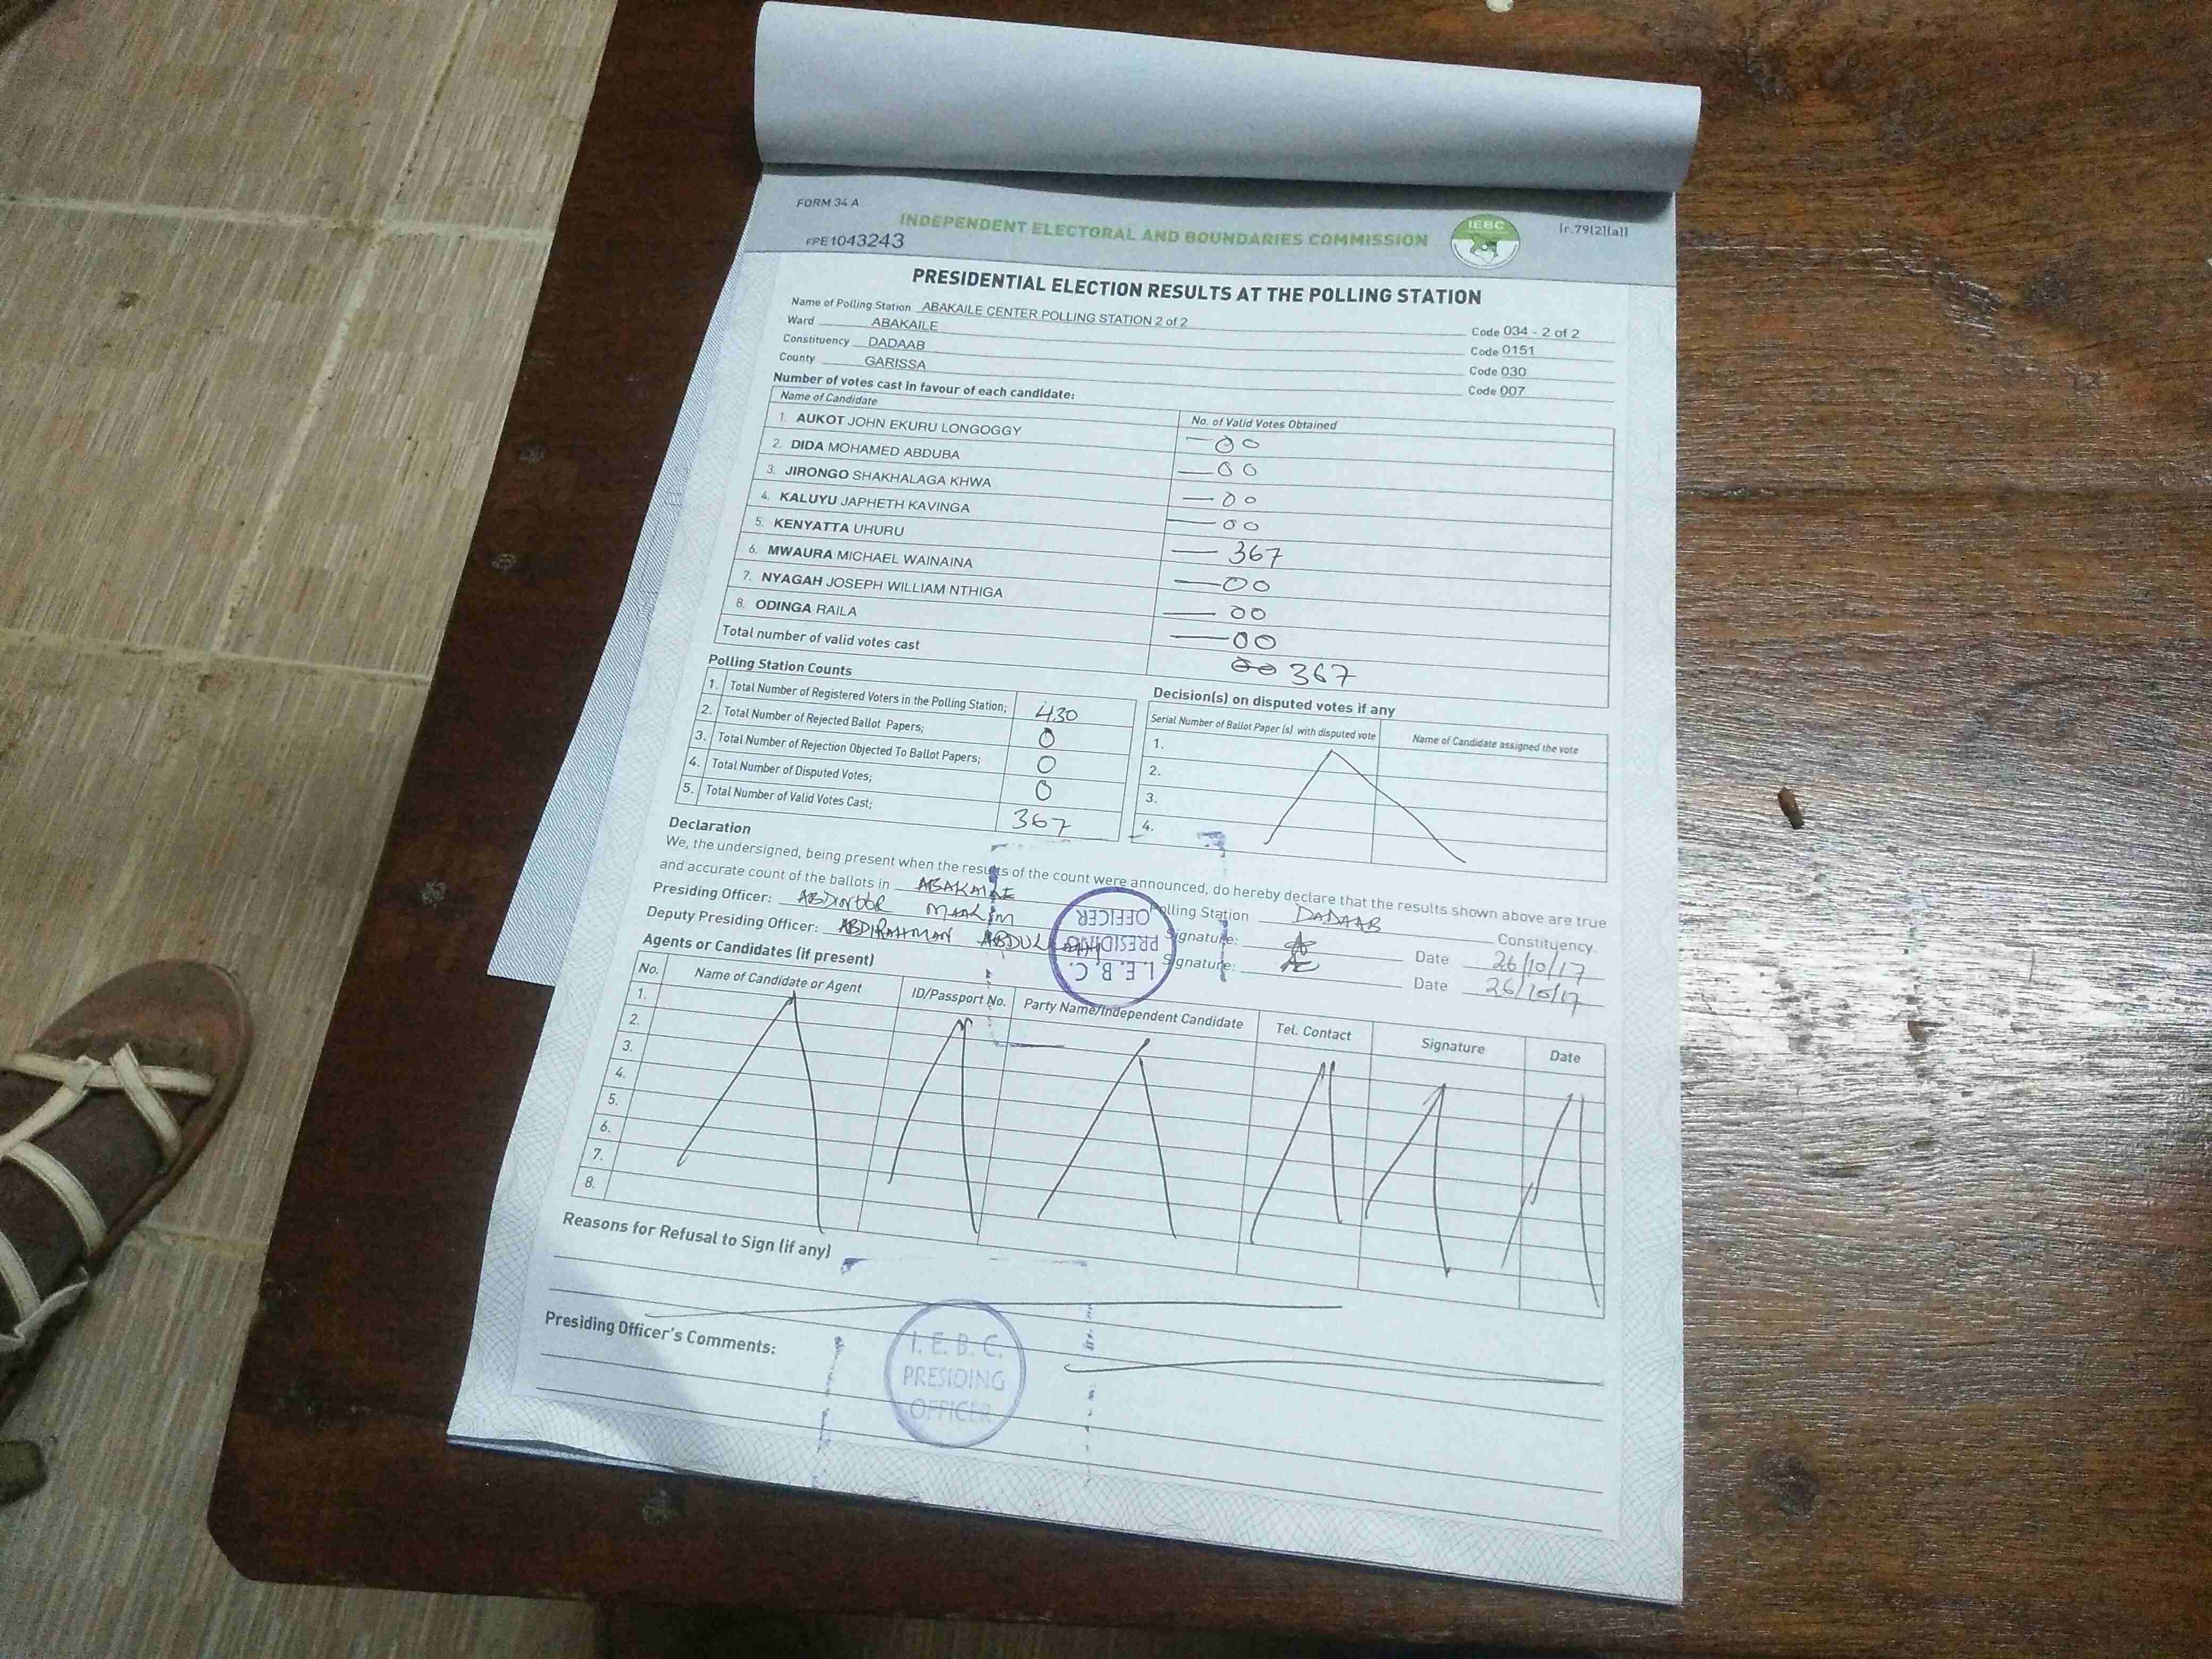 FORM 34 A
INDEPENDENT ELECTORAL AND BOUNDARIES COMMISSION
IEBC
(r.79(2)(a))
FPE1043243
PRESIDENTIAL ELECTION RESULTS AT THE POLLING STATION
Name of Polling Station ABAKAILE CENTER POLLING STATION 2 of 2 Code 034 - 2 of 2
Ward ABAKAILE Code 0151
Constituency DADAAB Code 030
County GARISSA Code 007
Number of votes cast in favour of each candidate:
Name of Candidate No. of Valid Votes Obtained
1. AUKOT JOHN EKURU LONGOGGY — 00
2. DIDA MOHAMED ABDUBA — 00
3. JIRONGO SHAKHALAGA KHWA — 00
4. KALUYU JAPHETH KAVINGA — 00
5. KENYATTA UHURU — 367
6. MWAURA MICHAEL WAINAINA — 00
7. NYAGAH JOSEPH WILLIAM NTHIGA — 00
8. ODINGA RAILA — 00
Total number of valid votes cast 00 367
Polling Station Counts
1. Total Number of Registered Voters in the Polling Station; 430
2. Total Number of Rejected Ballot Papers; 0
3. Total Number of Rejection Objected To Ballot Papers; 0
4. Total Number of Disputed Votes; 0
5. Total Number of Valid Votes Cast; 367
Decision(s) on disputed votes if any
Serial Number of Ballot Paper (s) with disputed vote Name of Candidate assigned the vote
1.
2.
3.
4.
Declaration
We, the undersigned, being present when the results of the count were announced, do hereby declare that the results shown above are true
and accurate count of the ballots in ABAKAILE Polling Station DADAAB Constituency.
Presiding Officer: ABDINOOR MAALIM Signature: Date 26/10/17
Deputy Presiding Officer: ABDIRAHMAN ABDULLAHI Signature: Date 26/10/17
I. E. B. C.
PRESIDING
OFFICER
Agents or Candidates (if present)
No. Name of Candidate or Agent ID/Passport No. Party Name/Independent Candidate Tel. Contact Signature Date
1.
2.
3.
4.
5.
6.
7.
8.
Reasons for Refusal to Sign (if any)
Presiding Officer's Comments:
I. E. B. C.
PRESIDING
OFFICER